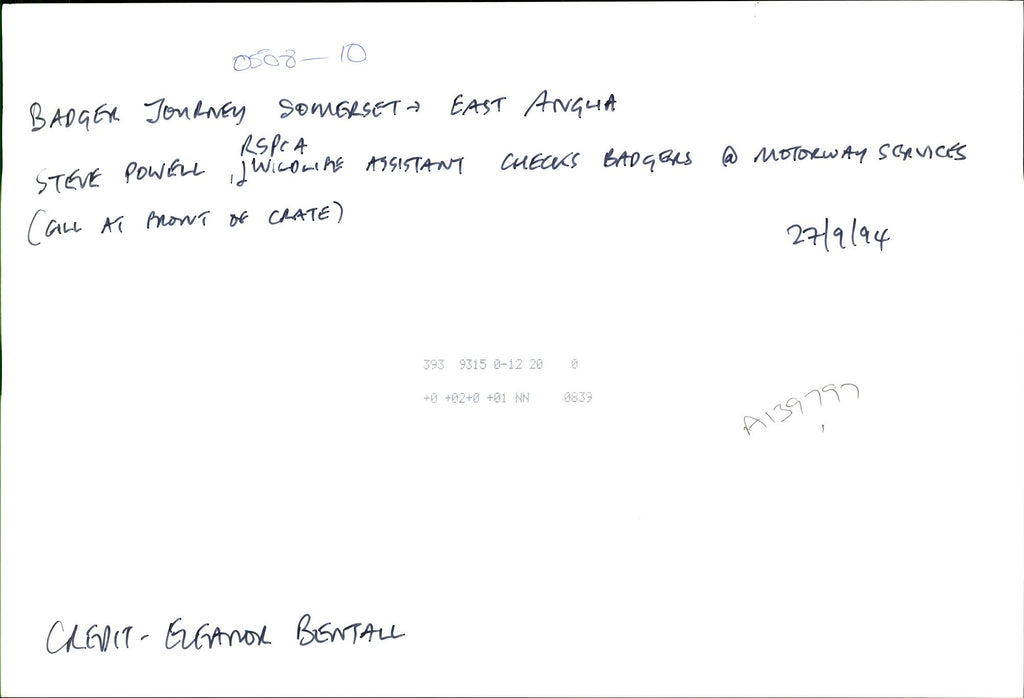 0508-10
BADGER JOURNEY SOMERSET → EAST ANGLIA
RSPCA
STEVE POWELL, WILDLIFE ASSISTANT CHECKS BADGERS @ MOTORWAY SERVICES
(GILL AT FRONT OF CRATE)
27/9/94
393 9315 0-12 20 0
+0 +02+0 +01 NN 0839
A139797
CREDIT - ELEANOR BENTALL